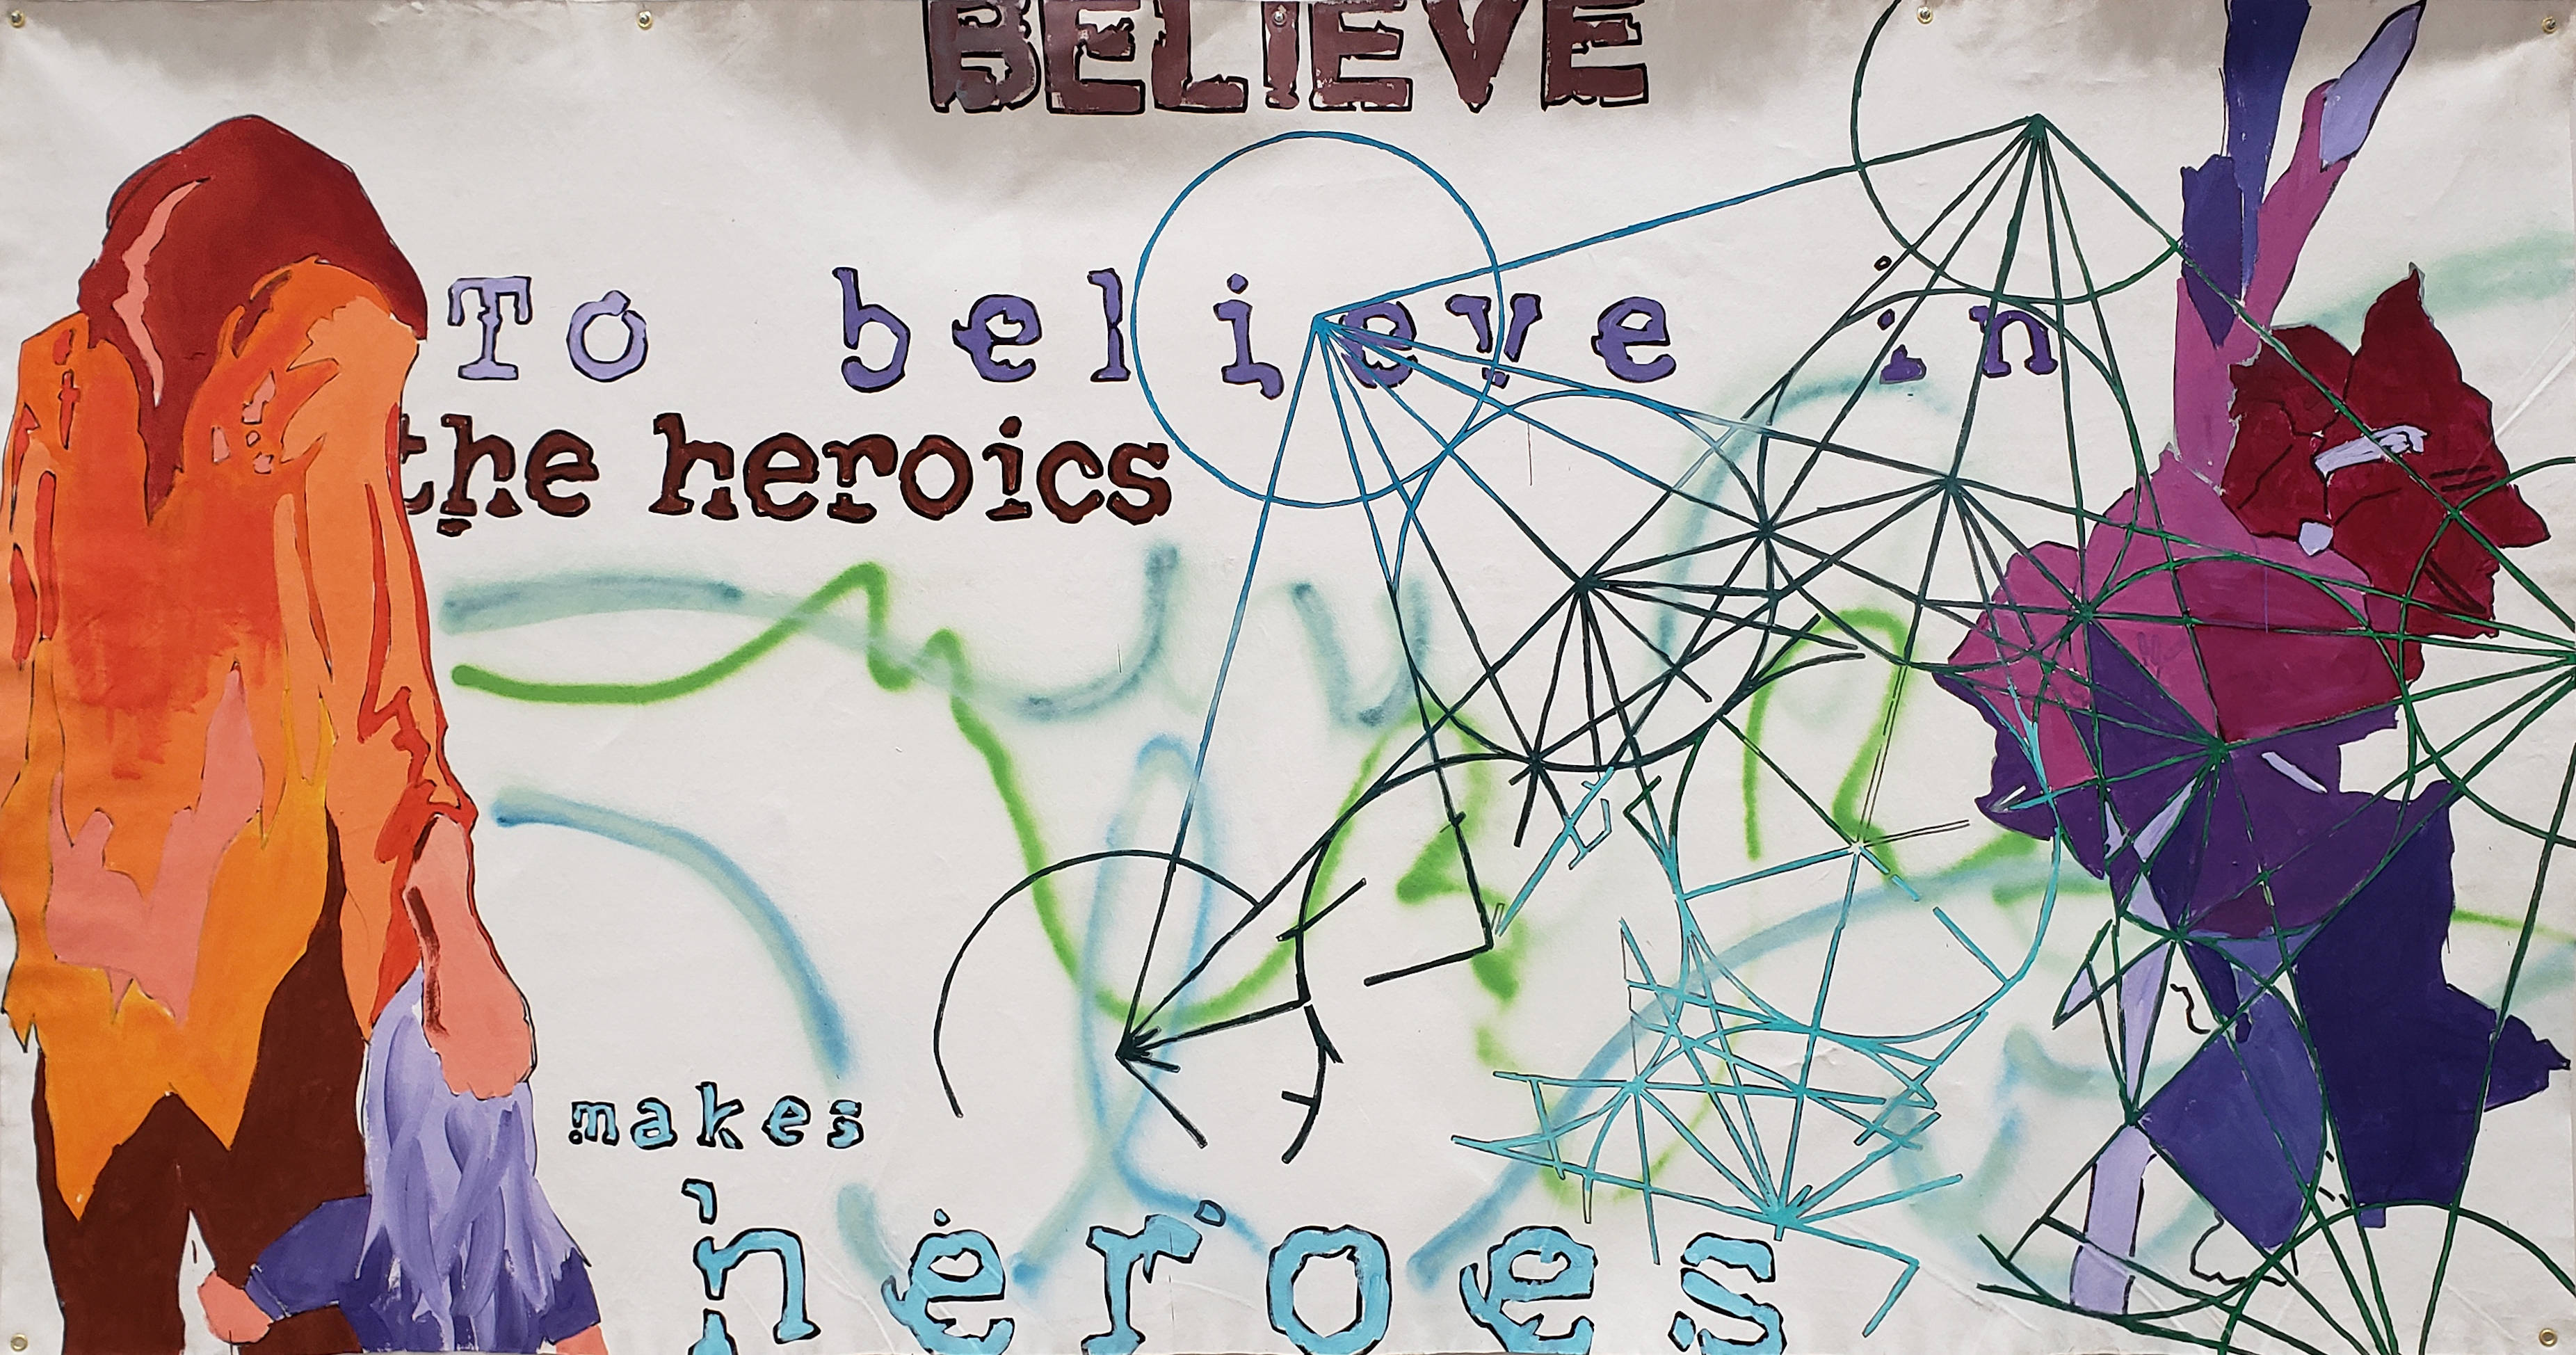 BELIEVE
To believe in
the heroics
makes
heroes